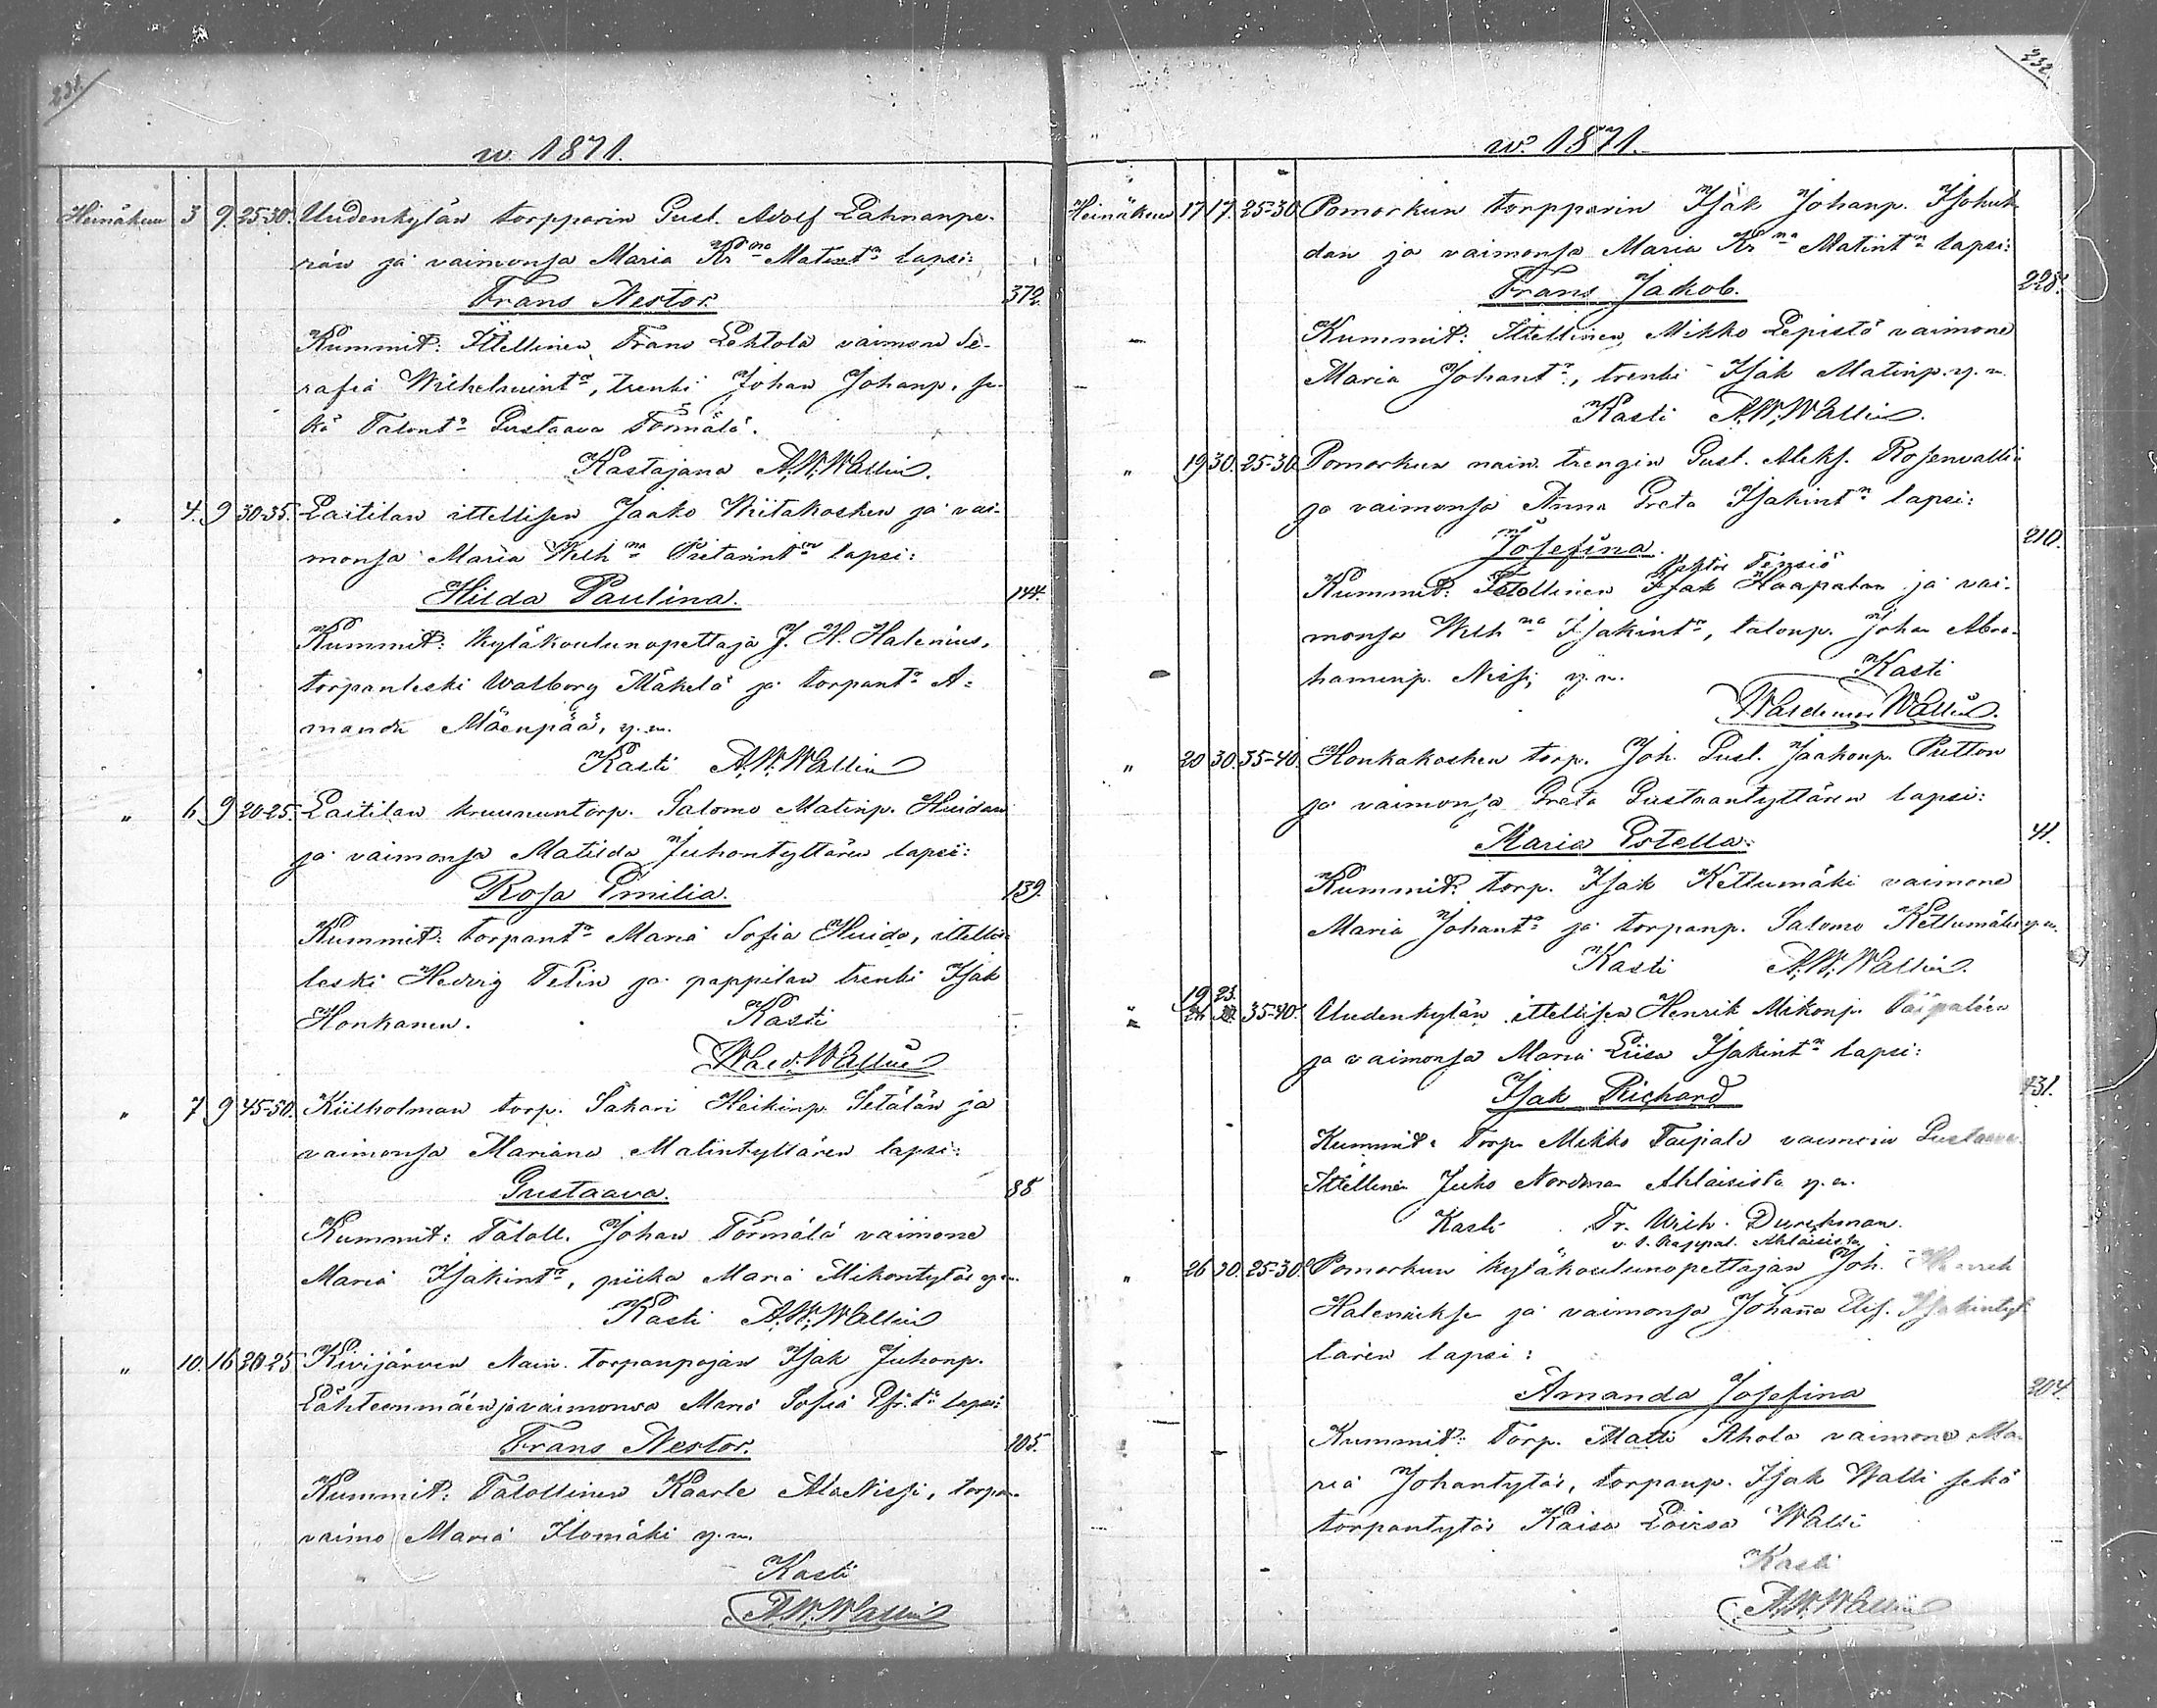 231.
w. 1871.
Heinäkuu 3 9. 25-30. Uudenkylän torpparin Gust. Adolf Lahnanpe-
rän ja vaimonsa Maria Kr:na Matint:n lapsi:
Frans Nestor. 372.
Kummit: Ittellinen Frans Lehtola vaimona Se-
rafia Wilhelmint:r, trenki Johan Johanp. se-
kä Talont:r Gustaava Törmälä.
Kastajana A. W. Wallin.
" 4. 9 30-35. Laitilan ittellisen Jaako Wiitakosken ja vai-
monsa Maria Wilh:na Pietarint:n lapsi:
Hilda Paulina. 144.
Kummit: kyläkoulunopettaja J. H. Halenius,
torpanleski Walborg Mäkelä ja torpant:r A-
manda Mäenpää, y. m.
Kasti A. W. Wallin
" 6. 9 20-25. Laitilan kruununtorp. Salomo Matinp. Huidan
ja vaimonsa Matilda Juhontyttären lapsi:
Rosa Emilia. 139.
Kummit: torpant:r Maria Sofia Huida, ittellis-
leski Hedvig Felin ja pappilan trenki Isak
Honkanen. Kasti
Wald. Wallin
" 7 9 45-50. Kiilholman torp. Sakari Heikinp. Setälän ja
vaimonsa Mariana Matintyttären lapsi:
Gustaava. 88
Kummit: Taloll. Johan Törmälä vaimona
Maria Isakint:r, piika Maria Mikontytär y. m.
Kasti A. W. Wallin
" 10. 16 20-25 Kivijärven Nain. torpanpojan Isak Juhonp.
Lähteenmäen ja vaimonsa Maria Sofia lapsi:
Frans Nestor. 205.
Kummit: Talollinen Kaarle AlaNissi, torpan
vaimo Maria Ilomäki y. m.
Kasti
A. W. Wallin
232.
w. 1871.
Heinäkuu 17 17. 25-30 Pomarkun torpparin Isak Johanp. Isohuh-
dan ja vaimonsa Maria Kr:na Matint:n lapsi:
Frans Jakob. 228.
Kummit: Ittellinen Mikko Lepistö vaimona
Maria Johant:r, trenki Isak Matinp. y. m.
Kasti A. W. Wallin.
" 19 30. 25-30 Pomarkun nain. trengin Gust. Aleks. Rosenvallin
ja vaimonsa Anna Greta Isakint:n lapsi:
Josefina. 210.
Kummit: Talollinen Isak Haapalan ja vai-
monsa Wilh:na Isakint:r, talonp. Johan Abra-
haminp. Nissi, y. m. Kasti
Waldemar Wallin.
" 20 30. 35-40. Honkakosken torp. Joh. Gust. Jaakonp. Putton
ja vaimonsa Greta Gustaantyttären lapsi:
Maria Estella. 41.
Kummit: torp. Isak Kettumäki vaimona
Maria Johant:r ja torpanp. Salomo Kettumäki y. m.
Kasti A. W. Wallin.
" 19 23. 35-40. Uudenkylän ittellisen Henrik Mikonp. Taipaleen
ja vaimonsa Maria Liisa Isakint:n lapsi:
Isak Richard 431.
Kummit: Torp. Mikko Taipale vaimoin Gustaava
Ittellinen Juho Nordman Ahlaisista y. m.
Kasti Fr. Wilh. Durchman.
v. t. Kappal. Ahlaisista.
" 26 30. 25-30. Pomarkun kyläkoulunopettajan Joh. Henrik
Haleniukse ja vaimonsa Johanna Elis. Isakintyt-
tären lapsi:
Amanda Josefina 204.
Kummit: Torp. Matti Ahola vaimona Ma-
ria Johantytär, torpanp. Isak Walli sekä
torpantytär Kaisa Lovisa Walli
Kasti
A. W. Wallin